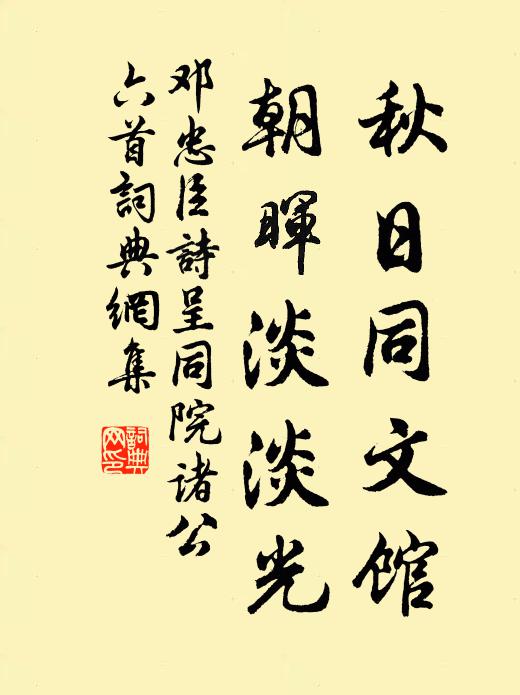 秋日同文馆
朝暉淡淡光
邓忠臣詩呈同院诸公
六首詞典網集
詞典
网印